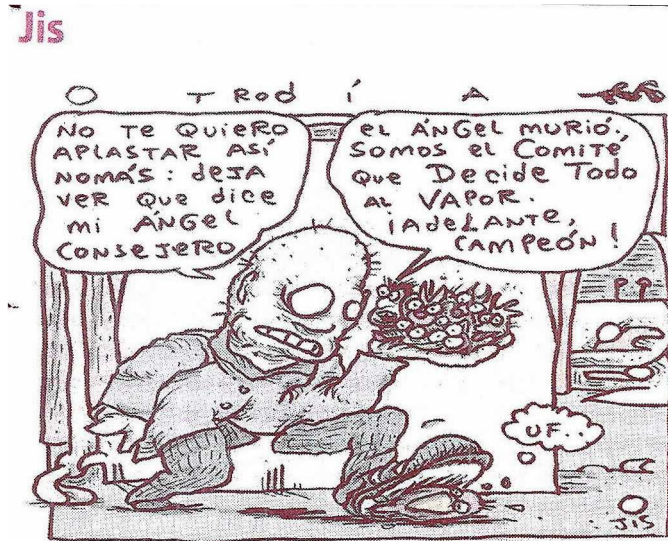 Jis
OTRO dÍA
NO Te QUIERO
APLASTAR ASÍ
NOMÁS: deJA
VER Que dice
mi ÁNGeL
CONSEJERO
eL ÁNGeL MURIÓ.,
SOMOS el COMITÉ
que Decide Todo
AL VAPOR.
¡AdeLANTe,
CAMPEÓN!
UF...
JIS